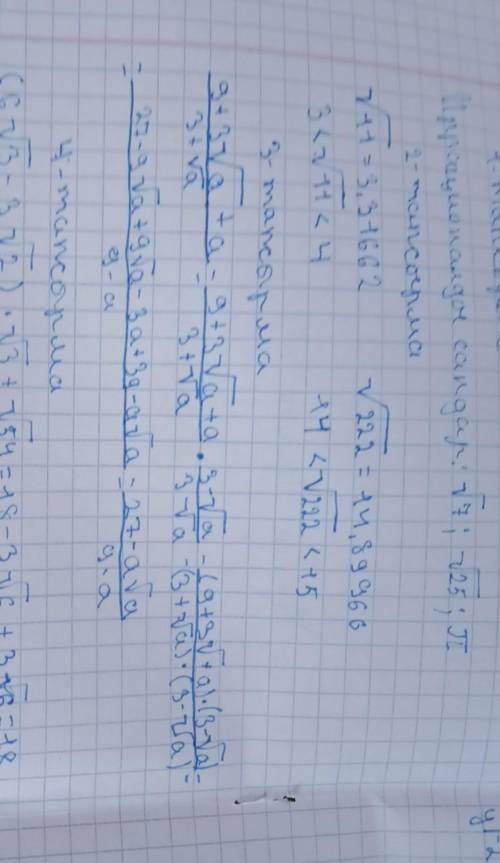 Иррационалдық сандар: √7; √25; π
2-тапсырма
√11 = 3,31662 √222 = 14,89966
3 < √11 < 4 14 < √222 < 15
3-тапсырма
(9+3√a+a)/(3+√a) = (9+3√a+a)/(3+√a) · (3-√a)/(3-√a) = ((9+3√a+a)·(3-√a))/((3+√a)·(3-√a)) =
= (27-9√a+9√a-3a+3a-a√a)/(9-a) = (27-a√a)/(9-a)
4-тапсырма
(6√3 - 3√2) · √3 + √54 = 18 - 3√6 + 3√6 = 18